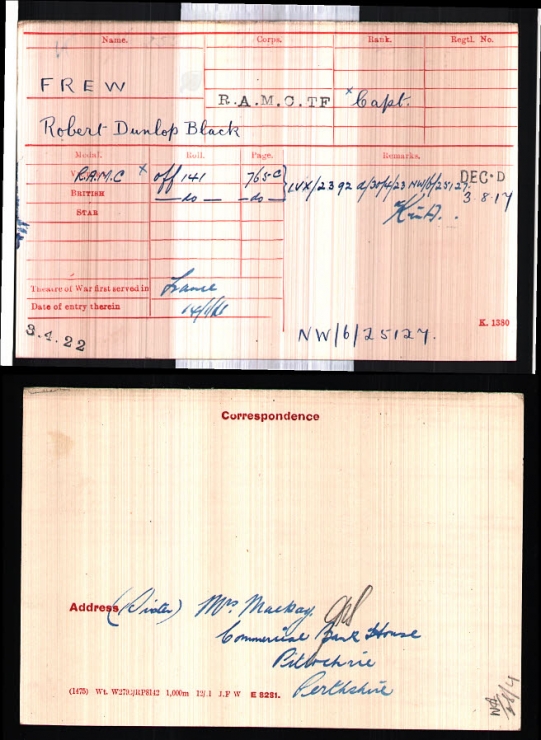 Name.
Corps.
Rank.
Regtl. No.
FREW
R.A.M.C.TF
x Capt.
Robert Dunlop Black
Medal.
Roll.
Page.
Remarks.
R.A.M.C x
off 141
765 C
IVX/2392 d/30/4/23 NW/6/25127.
DEC·D
3.8.17
BRITISH
— do —
— do —
K in A.
STAR
Theatre of War first served in
France
Date of entry therein
K. 1380
3.4.22
NW/6/25127.
Correspondence
Address
(Sister) Mrs Mackay.
Commercial Bank House
Pitlochrie
Perthshire
E 8281.